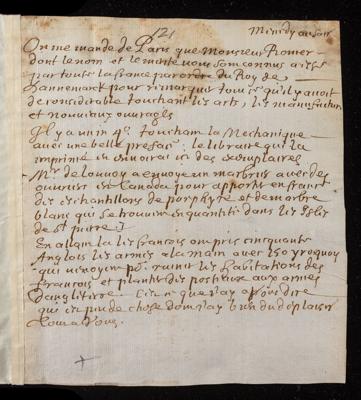 121
Mercredy au soir
On me mande de Paris que Monsieur Romer
dont le nom et le merite vous sont connus a esté
par toute la france par ordre du Roy de
Dannemarck pour remarquer tout ce qu'il y avoit
de considerable touchant les arts, les manufactures
et nouveaux ouvrages
Il y a un in 4º touchant la Mechanique
avec une belle preface; le libraire qui l'a
imprimé en envoirai ici des exemplaires
Mr de Louvoy a envoye un marbrier avec des
ouvriers en Canada pour apporter en france
des eschantillons de porphyre et de marbre
blanc qui se trouve en quantité dans les Isles
de St pierre
En allant la les francois ont pris cinquante
Anglois les armes a la main avec 150 yroquois
qui venoyent pr ruiner les habitations des
francois et planter des posteaux aux armes
D'angleterre. C'est ce que j'ay a vous dire
qui est peu de chose dont j'ay bien du deplaisir
Tout a Vous.